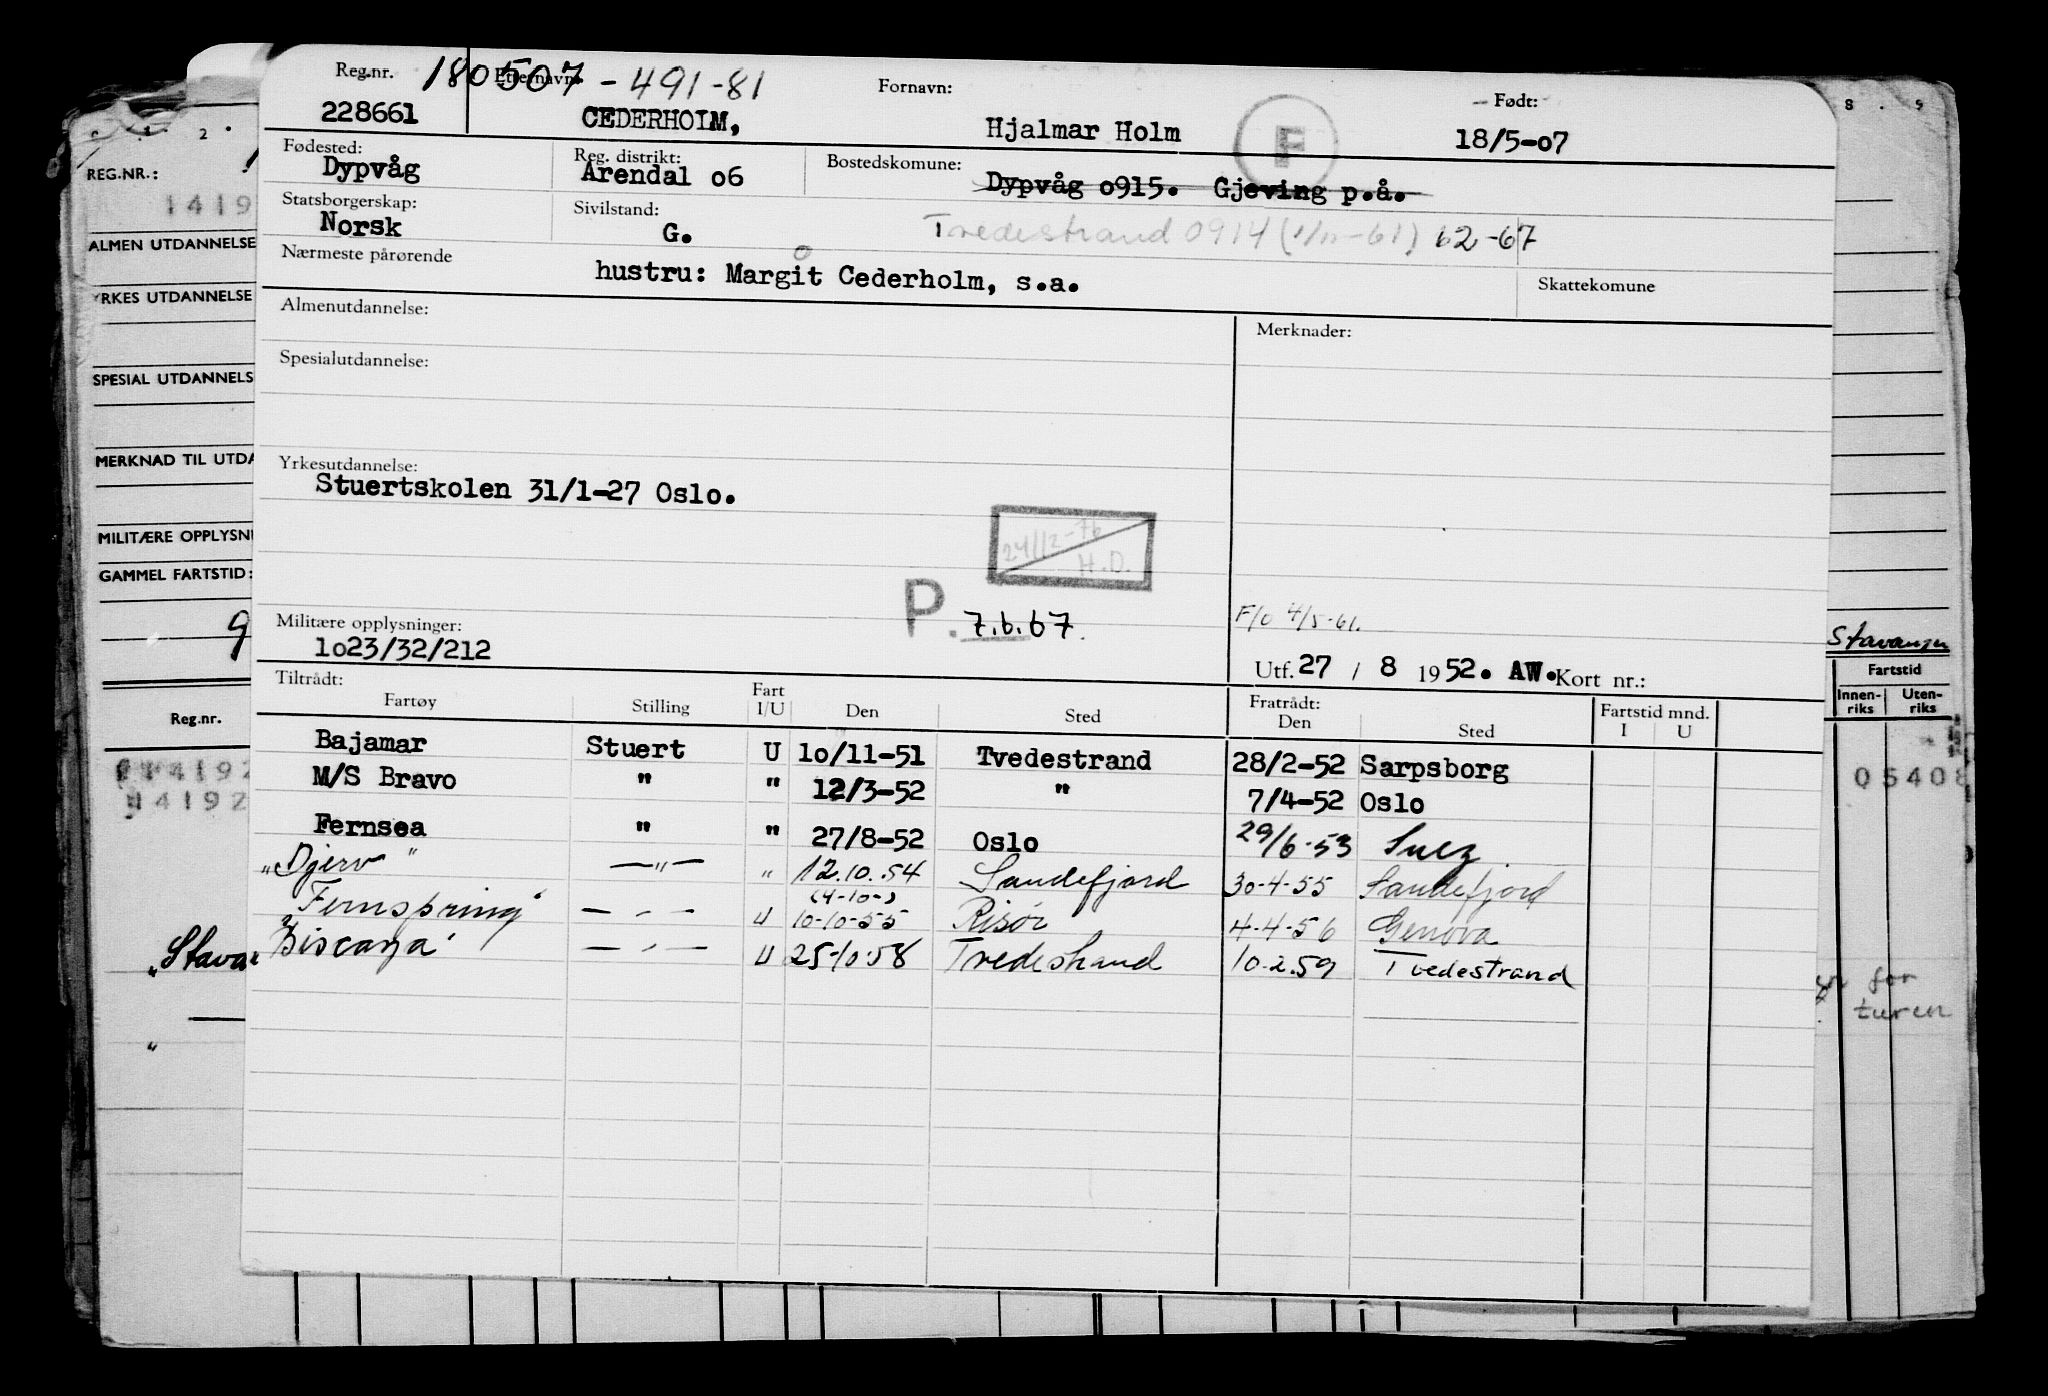 Reg.nr. 180507-491-81 Etternavn: Fornavn: Født:
228661 CEDERHOLM, Hjalmar Holm F 18/5-07
Fødested: Reg. distrikt: Bostedskomune:
Dypvåg Arendal o6 Dypvåg o915. Gjeving p.å.
Statsborgerskap: Sivilstand:
Norsk G. Tvedestrand 0914 (1/11-61) 62-67
Nærmeste pårørende
hustru: Margit Cederholm, s.a. Skattekomune
Almenutdannelse: Merknader:
Spesialutdannelse:
Yrkesutdannelse:
Stuertskolen 31/1-27 Oslo.
24/12-76
H.D.
P. 7.6.67.
F/o 4/5-61.
Militære opplysninger:
1o23/32/212
Utf. 27 / 8 1952. AW. Kort nr.:
Tiltrådt: Fratrådt: Fartstid mnd.
Fartøy Stilling Fart I/U Den Sted Den Sted I U
Bajamar Stuert U 1o/11-51 Tvedestrand 28/2-52 Sarpsborg
M/S Bravo " " 12/3-52 " 7/4-52 Oslo
Fernsea " " 27/8-52 Oslo 29/6-53 Suez
"Djerv" —"— " 12.10.54 Sandefjord 30-4-55 Sandefjord
(4-10-)
"Fernspring" — " — U 10-10-55 Risör 4-4-56 Genova
"Biscaya" — " — U 25-10-58 Tvedestrand 10.2.59 Tvedestrand
REG.NR.:
1419
ALMEN UTDANNELSE
YRKES UTDANNELSE
SPESIAL UTDANNELS
MERKNAD TIL UTDA
MILITÆRE OPPLYSN
GAMMEL FARTSTID:
9
Reg.nr.
14192
14192
"Stava
"
8 . 9
Stavanger
Fartstid
Innen-riks Uten-riks
05408
for
turen